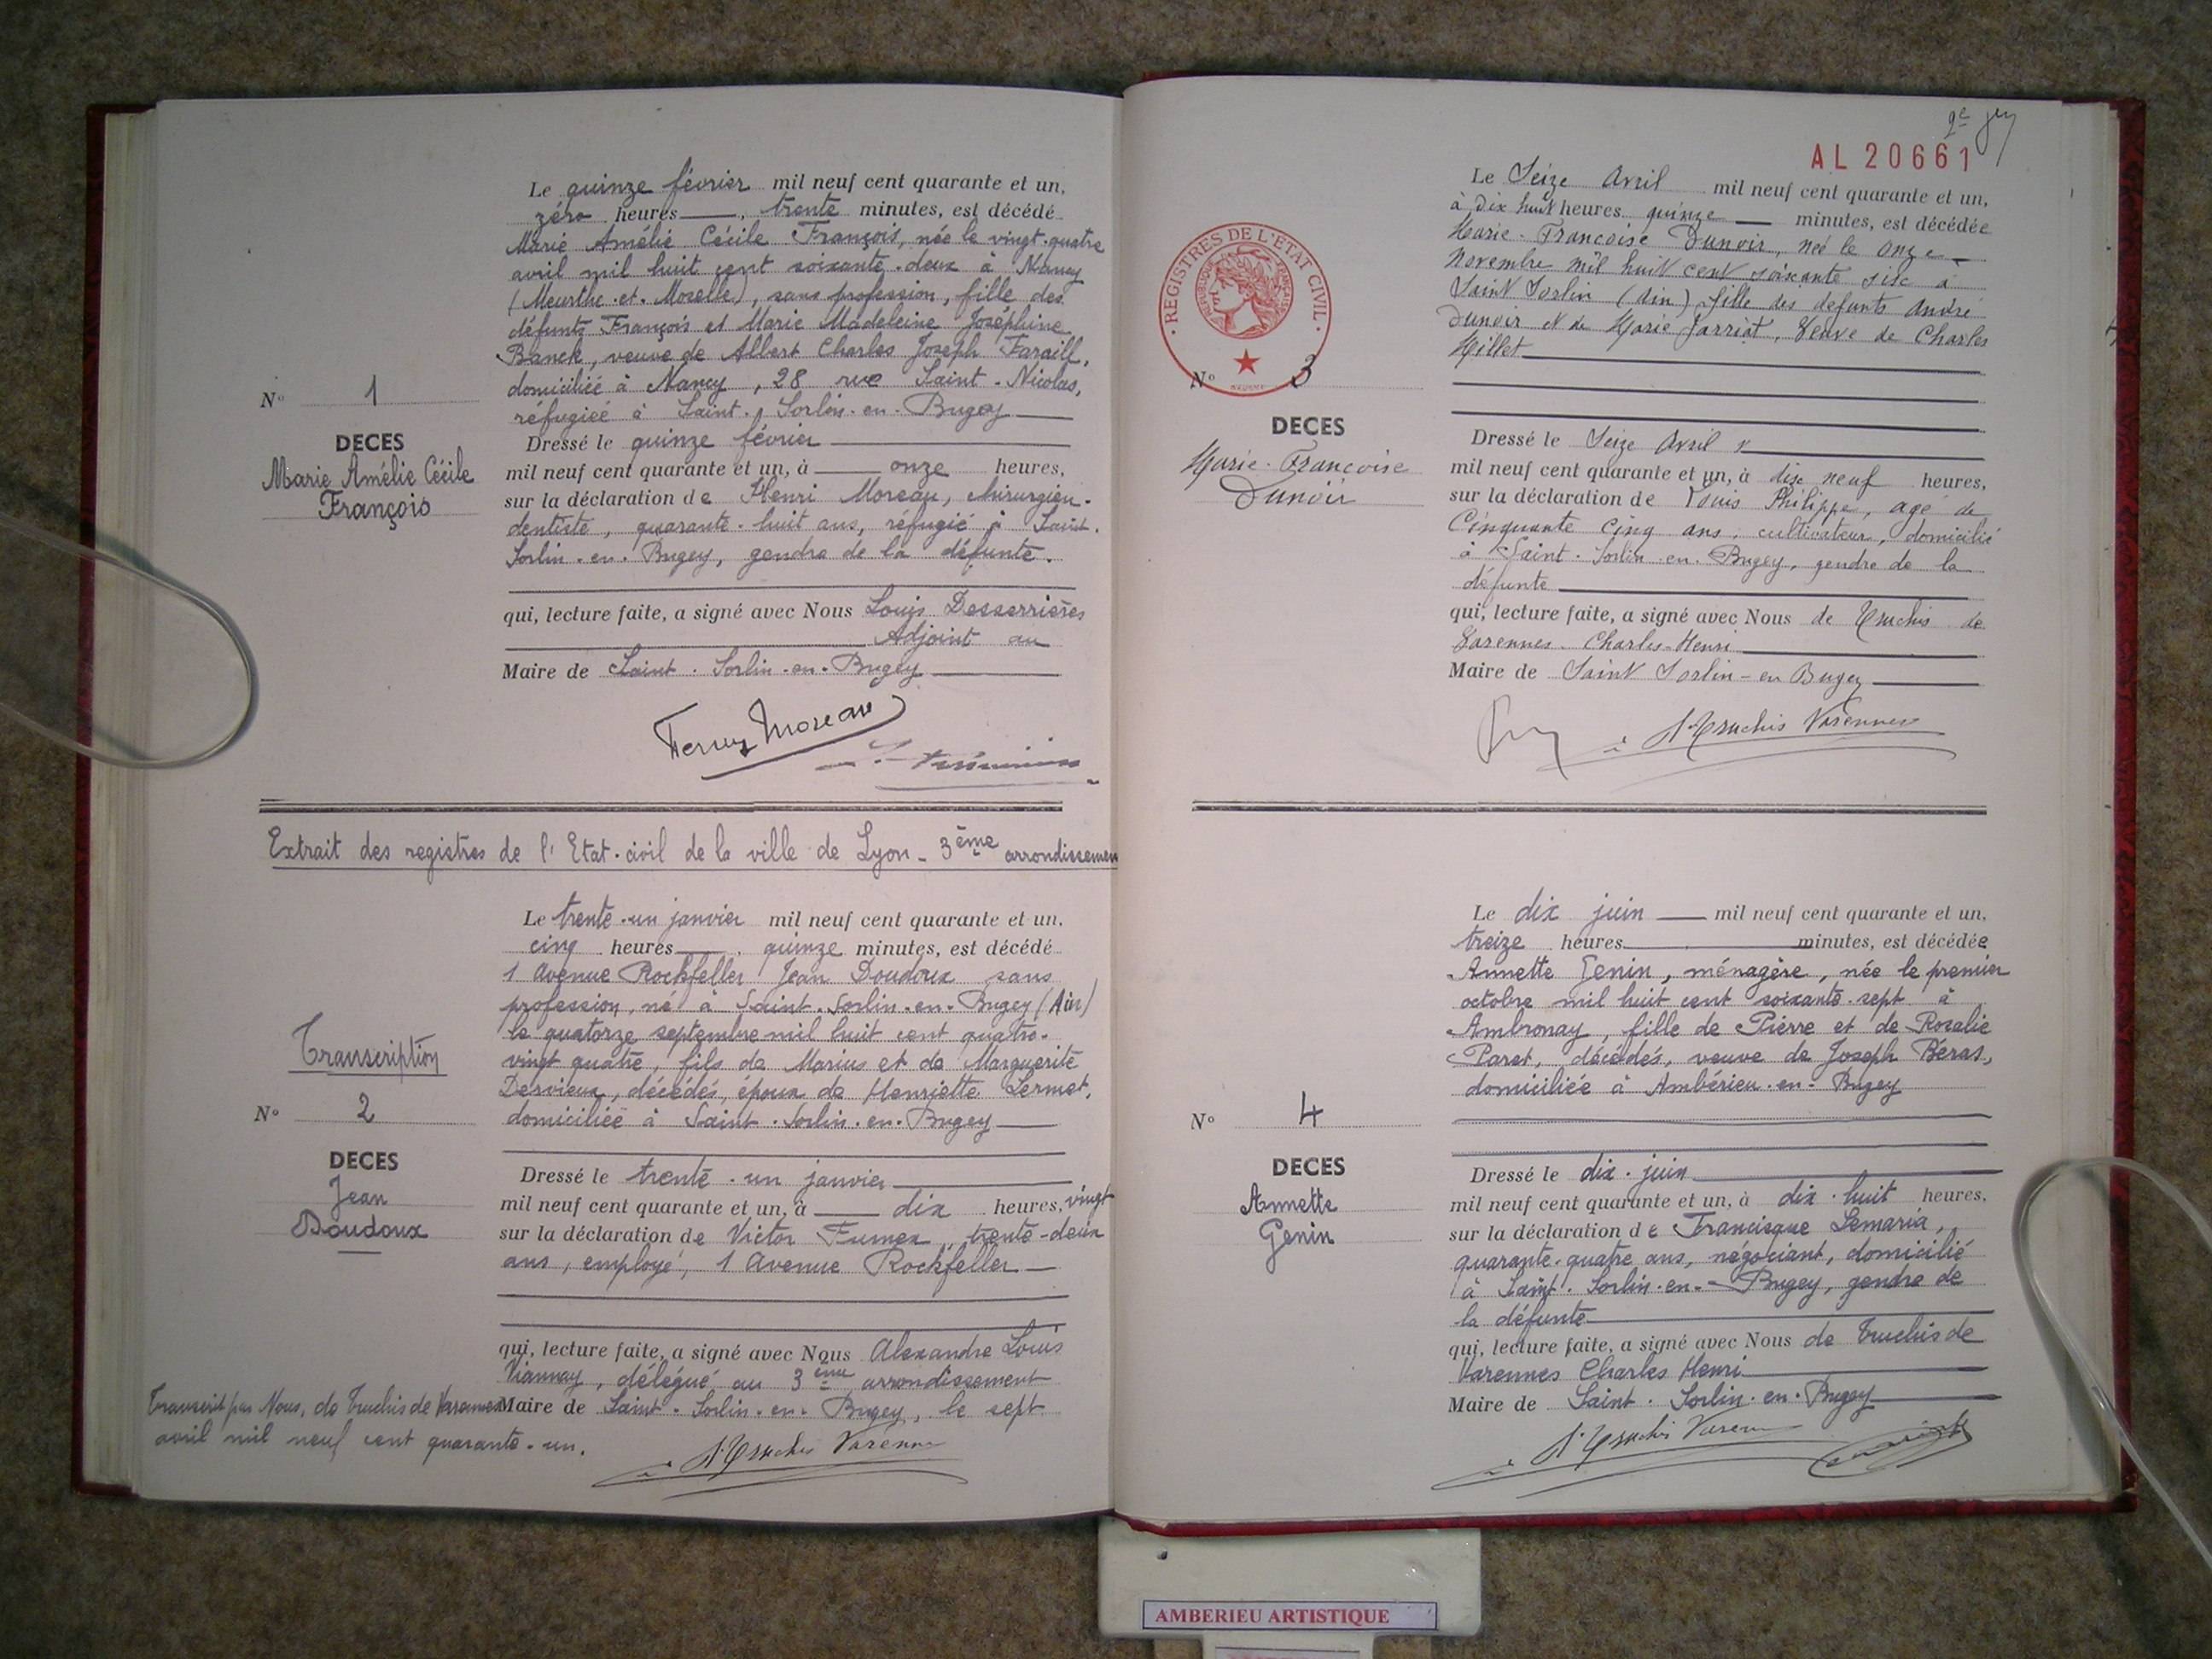 Le quinze février mil neuf cent quarante et un,
zéro heures, trente minutes, est décédé
Marie Amélie Cécile François, née le vingt-quatre
avril mil huit cent soixante-deux à Nancy
(Meurthe-et-Moselle), sans profession, fille des
défunts François et Marie Madeleine Joséphine
Banck, veuve de Albert Charles Joseph
domiciliée à Nancy, 28 rue Saint-Nicolas,
réfugiée à Saint-Sorlin-en-Bugey
N° 1
DECES
Marie Amélie Cécile
François
Dressé le quinze février
mil neuf cent quarante et un, à onze heures,
sur la déclaration de Henri Moreau, chirurgien-
dentiste, quarante-huit ans, réfugié à Saint-
Sorlin-en-Bugey, gendre de la défunte.
qui, lecture faite, a signé avec Nous Louis Desserrières
Adjoint au
Maire de Saint-Sorlin-en-Bugey
Henry Moreau
Extrait des registres de l'Etat-civil de la ville de Lyon - 3ème arrondissemen
Le trente-un janvier mil neuf cent quarante et un,
cinq heures, quinze minutes, est décédé
1 Avenue Rockfeller Jean Doudoux sans
profession, né à Saint-Sorlin-en-Bugey (Ain)
le quatorze septembre mil huit cent quatre-
vingt quatre, fils de Marius et de Marguerite
Dervieux, décédés, époux de Henriette Lermet,
domiciliée à Saint-Sorlin-en-Bugey
Transcription
N° 2
DECES
Jean
Doudoux
Dressé le trente-un janvier
mil neuf cent quarante et un, à dix heures, vingt
sur la déclaration de Victor Fumex, trente-deux
ans, employé, 1 Avenue Rockfeller
qui, lecture faite, a signé avec Nous Alexandre Louis
Viannay, délégué au 3ème arrondissement
Maire de Saint-Sorlin-en-Bugey, le sept
Transcrit par Nous, de Truchis de Varennes
avril mil neuf cent quarante-un.
A. Truchis Varennes
2e
AL 20661
Le Seize Avril mil neuf cent quarante et un,
à dix huit heures quinze minutes, est décédée
Marie-Francoise Dunoir, neé le onze
novembre mil huit cent soixante six à
Saint Sorlin (Ain) fille des defunts André
Dunoir et de Marie Jarriat, Veuve de Charles
Millet
REGISTRES DE L'ETAT CIVIL
REPUBLIQUE FRANÇAISE
N° 3
DECES
Marie-Francoise
Dunoir
Dressé le Seize Avril
mil neuf cent quarante et un, à dix neuf heures,
sur la déclaration de Louis Philippe, agé de
Cinquante Cinq ans, cultivateur, domicilié
à Saint-Sorlin-en-Bugey, gendre de la
défunte
qui, lecture faite, a signé avec Nous de Truchis de
Varennes Charles-Henri
Maire de Saint Sorlin-en Bugey
A. Truchis Varennes
Le dix juin mil neuf cent quarante et un,
treize heures minutes, est décédée
Annette Genin, ménagère, née le premier
octobre mil huit cent soixante-sept à
Ambronay, fille de Pierre et de Rosalie
Paret, décédés, veuve de Joseph Béras,
domiciliée à Ambérieu-en-Bugey
N° 4
DECES
Annette
Genin
Dressé le dix-juin
mil neuf cent quarante et un, à dix-huit heures,
sur la déclaration de Francisque Lemaria,
quarante-quatre ans, négociant, domicilié
à Saint-Sorlin-en-Bugey, gendre de
la défunte
qui, lecture faite, a signé avec Nous de Truchis de
Varennes Charles Henri
Maire de Saint-Sorlin-en-Bugey
A. Truchis Varenn
AMBERIEU ARTISTIQUE